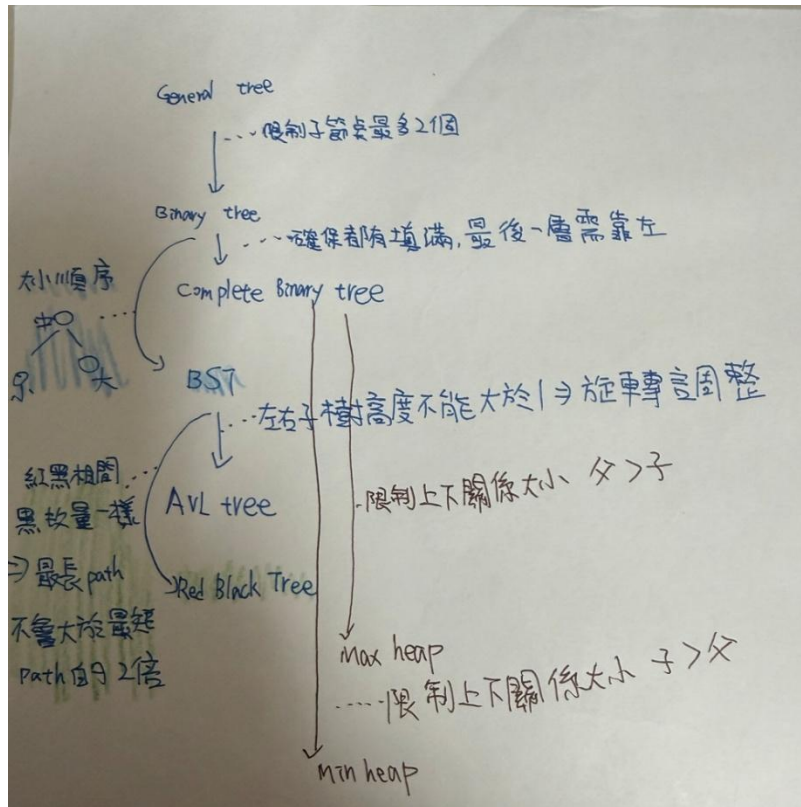 General tree
限制子節點最多2個
Binary tree
確保都有填滿,最後一層需靠左
大小順序
Complete Binary tree
中
小
大
BST
左右子樹高度不能大於1⇒旋轉調整
紅黑相間
黑數量一樣
⇒最長path
不會大於最短
path的2倍
AVL tree
Red Black Tree
限制上下關係大小 父>子
Max heap
限制上下關係大小 子>父
Min heap